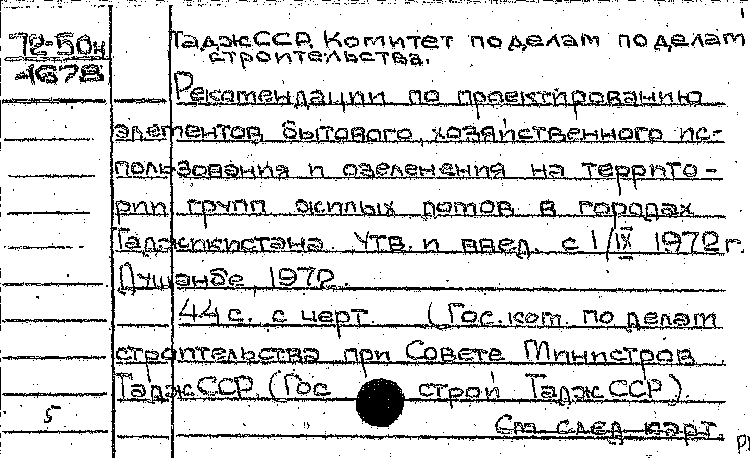 72-50н
4678
ТаджССР. Комитет по делам по делам
строительства.
Рекомендации по проектированию
элементов бытового, хозяйственного ис-
пользования и озеленения на террито-
рии групп жилых домов в городах
Таджикистана. Утв. и введ. с 1/IX 1972г.
Душанбе, 1972.
44 с. с черт. (Гос. ком. по делам
строительства при Совете Министров
ТаджССР. (Гос строй ТаджССР).
5
См. след. карт.